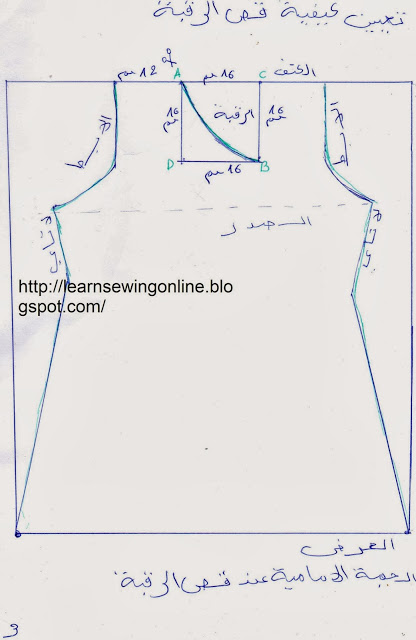 تبيين كيفية قص الرقبة
الكتف
C
16 سم
A
12 سم
16 سم
الرقبة
16 سم
D
16 سم
B
الصدر
http://learnsewingonline.blo
gspot.com/
العرض
الجهة الامامية عند قص الرقبة
3